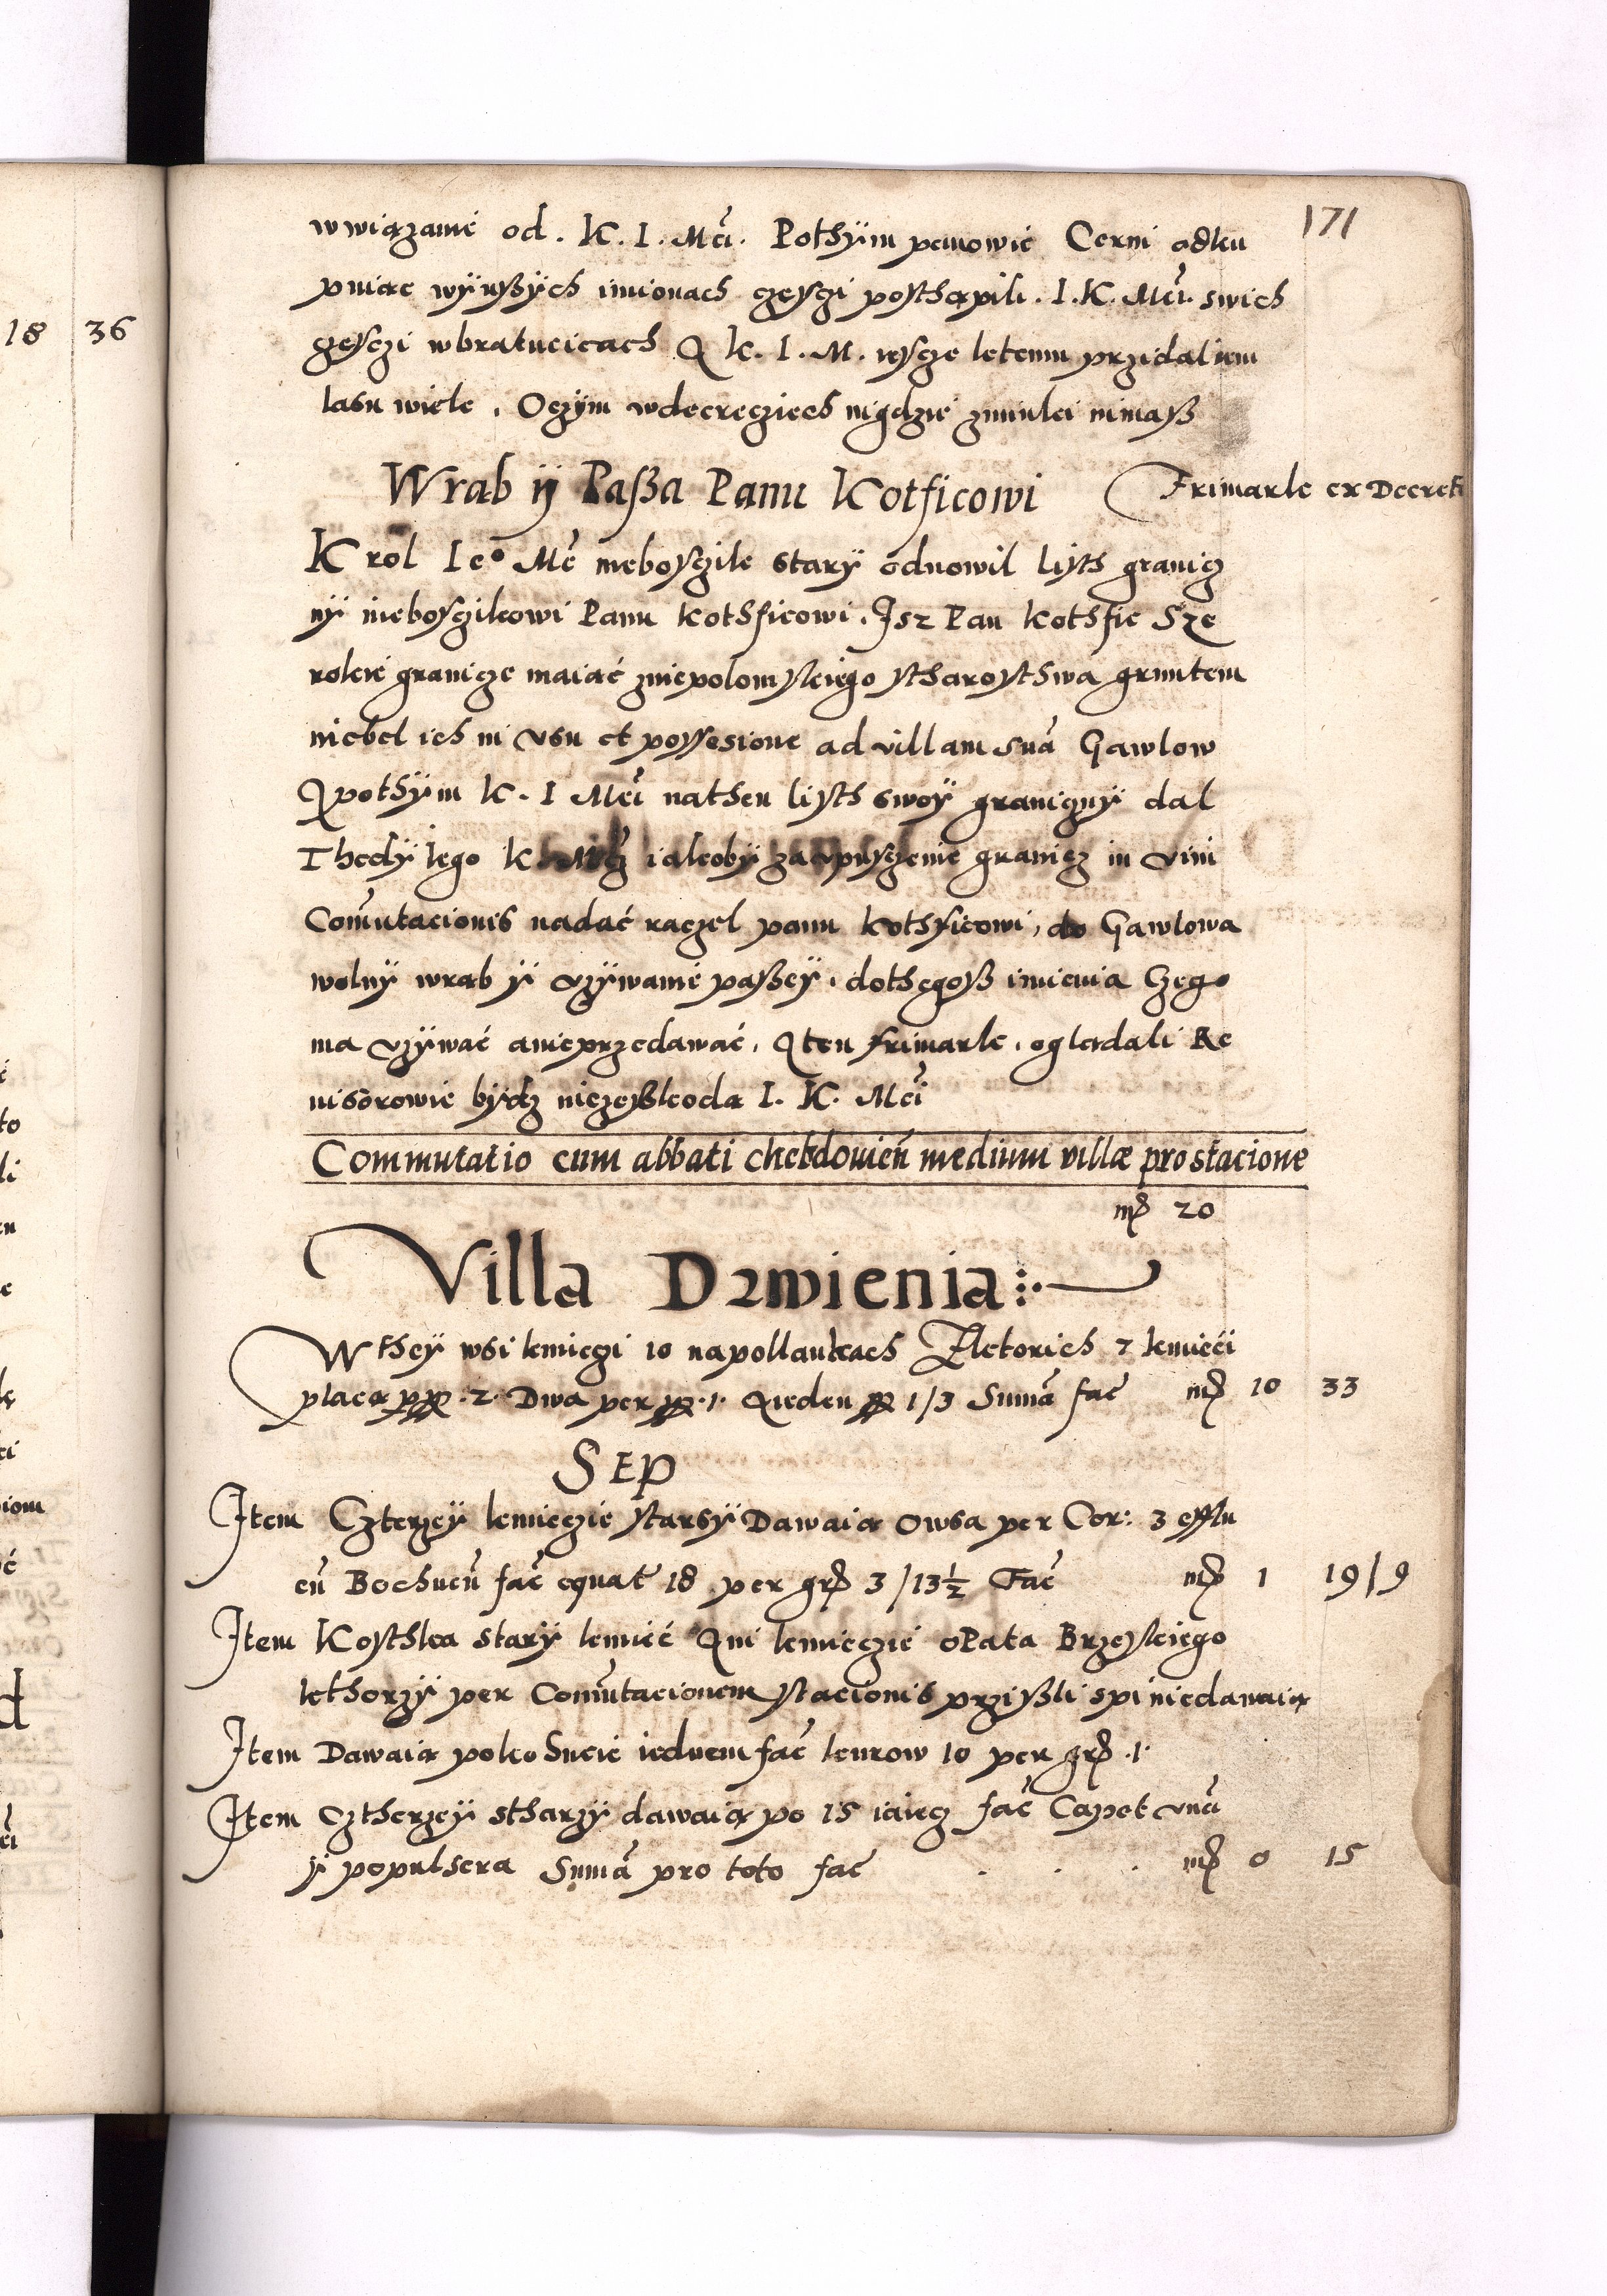 171
wwiązanie od. K. I. Mci. Pothÿm panowie Cerni odku
puiąc wÿnszÿch imionach częsczi posthąpili. I. K. Mci. swich
częsczi wbratucicach Q K. I. M. iescze ktemu przidal iem
lasu wiele. Oczÿm wdecrecziech nigdzie zminki nimasz
Wrab ÿ Passa Panu Kotficowi
Frimark ex Decreti
Krol Ieº Mc nieboszczik starÿ odnowil listh granicz
nÿ nieboszczikowi Panu Kothficowi. Isz Pan Kothfic Sze
rokie granicze maiąc zniepolomskiego stharosthwa gruntem
niebel ich in usu et possesione ad villam suā Gawlow
Qpothÿm K. I Mci nathen listh swoÿ granicznÿ dal
Thedÿ Iego K iakobÿ za opusczenie granicz in vim
Comutacionis nadać raczel panu Kothficowi, do Gawlowa
wolnÿ wrab ÿ uzÿwanie passeÿ, dothegosz imienia czego
ma uzÿwać anieprzedawać, Qten frimark, oglądali Re
uisorowie bÿdz niezeszkodą I. K. Mci
Commutatio cum abbati chebdouień medium villæ pro stacione
mꝝ 20
Villa Drwienia
Wtheÿ wsi kmieczi 10 napollankach Zktorich 7 kmieći
placą pꝝ .2. Dwa per pꝝ .1. Qieden pꝝ 1/3 Sumā fac mꝝ 10 33
SEP
Item Czterzeÿ kmieczie starsÿ Dawaią Owsa per Cor: 3 efflu
cū Bochueū fac equat 18 per grꝝ 3/13½ Fac mꝝ 1 19/9
Item Kosthka starÿ kmieć Qni kmieczie oPata Brzeskiego
kthorzÿ per Comutacionem stacionis prziszli spi niedawaią
Item Dawaią poko Sucie iednem fac kurow 10 per grꝝ .1.
Item Cztherzeÿ stharzÿ dawaią po 15 iaiecz fac Capet unā
ÿ populsera Sumā pro toto fac mꝝ 0 15
18 36